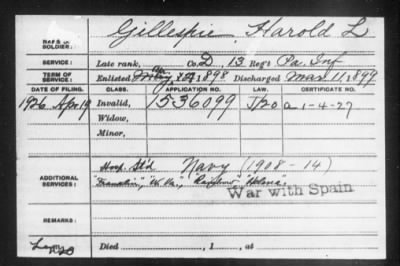 NAME OF SOLDIER: Gillespie, Harold L
SERVICE: Late rank, Co. D, 13 Reg't Pa. Inf
TERM OF SERVICE: Enlisted 1898 Discharged Mar. 11, 1899
DATE OF FILING. CLASS. APPLICATION NO. LAW. CERTIFICATE NO.
1926 Apr 19 Invalid, 1536099 J/20 a 1-4-27
Widow,
Minor,
ADDITIONAL SERVICES: Hosp. Std Navy (1908-14)
"Franklin", "W. Va.",
War with Spain
REMARKS:
Died , 1 , at